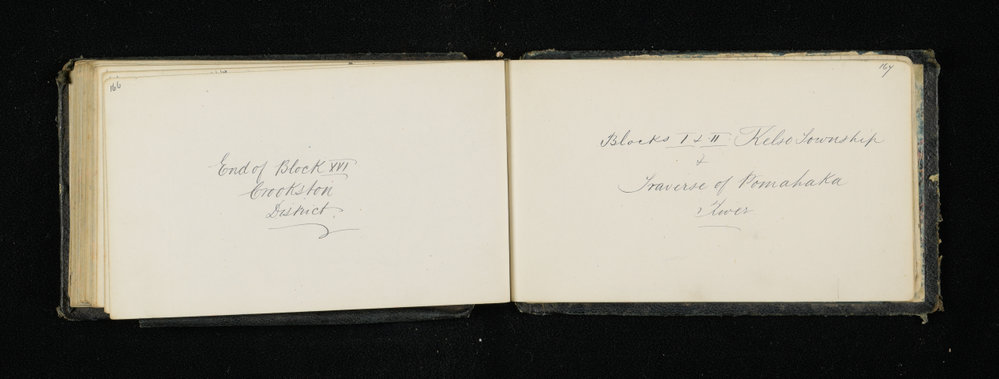 166
End of Block XVI
Crookston
District.
167
Blocks I & II Kelso Township
&
Traverse of Pomahaka
River